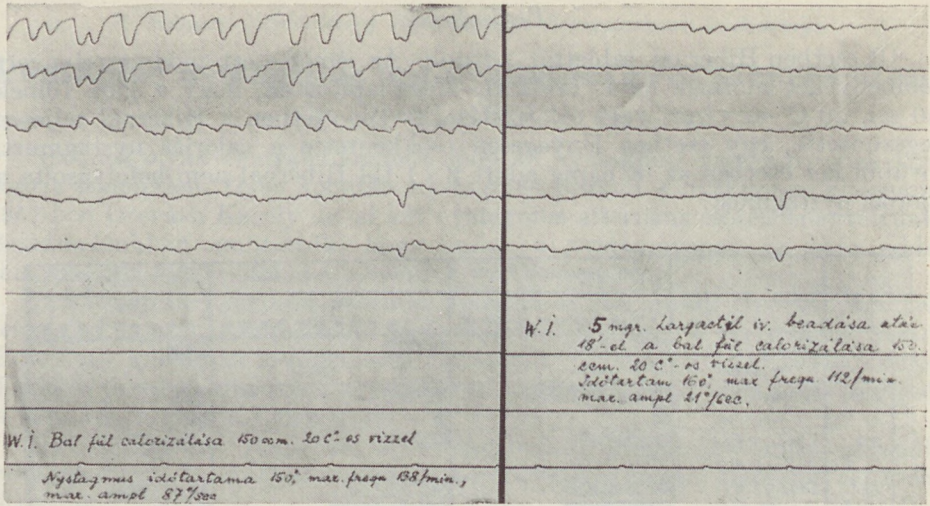 W.I. Bal fül calorizálása 150 ccm. 20 C°-os vizzel
Nystagmus időtartama 150", max. frequ 138/min.,
max. ampl 87°/sec
W.I. 5 mgr. Largactyl iv. beadása után
18'-el a bal fül calorizálása 150.
ccm. 20 C°-os vizzel.
Időtartam 160", max frequ. 112/min.
max. ampl 21°/sec.